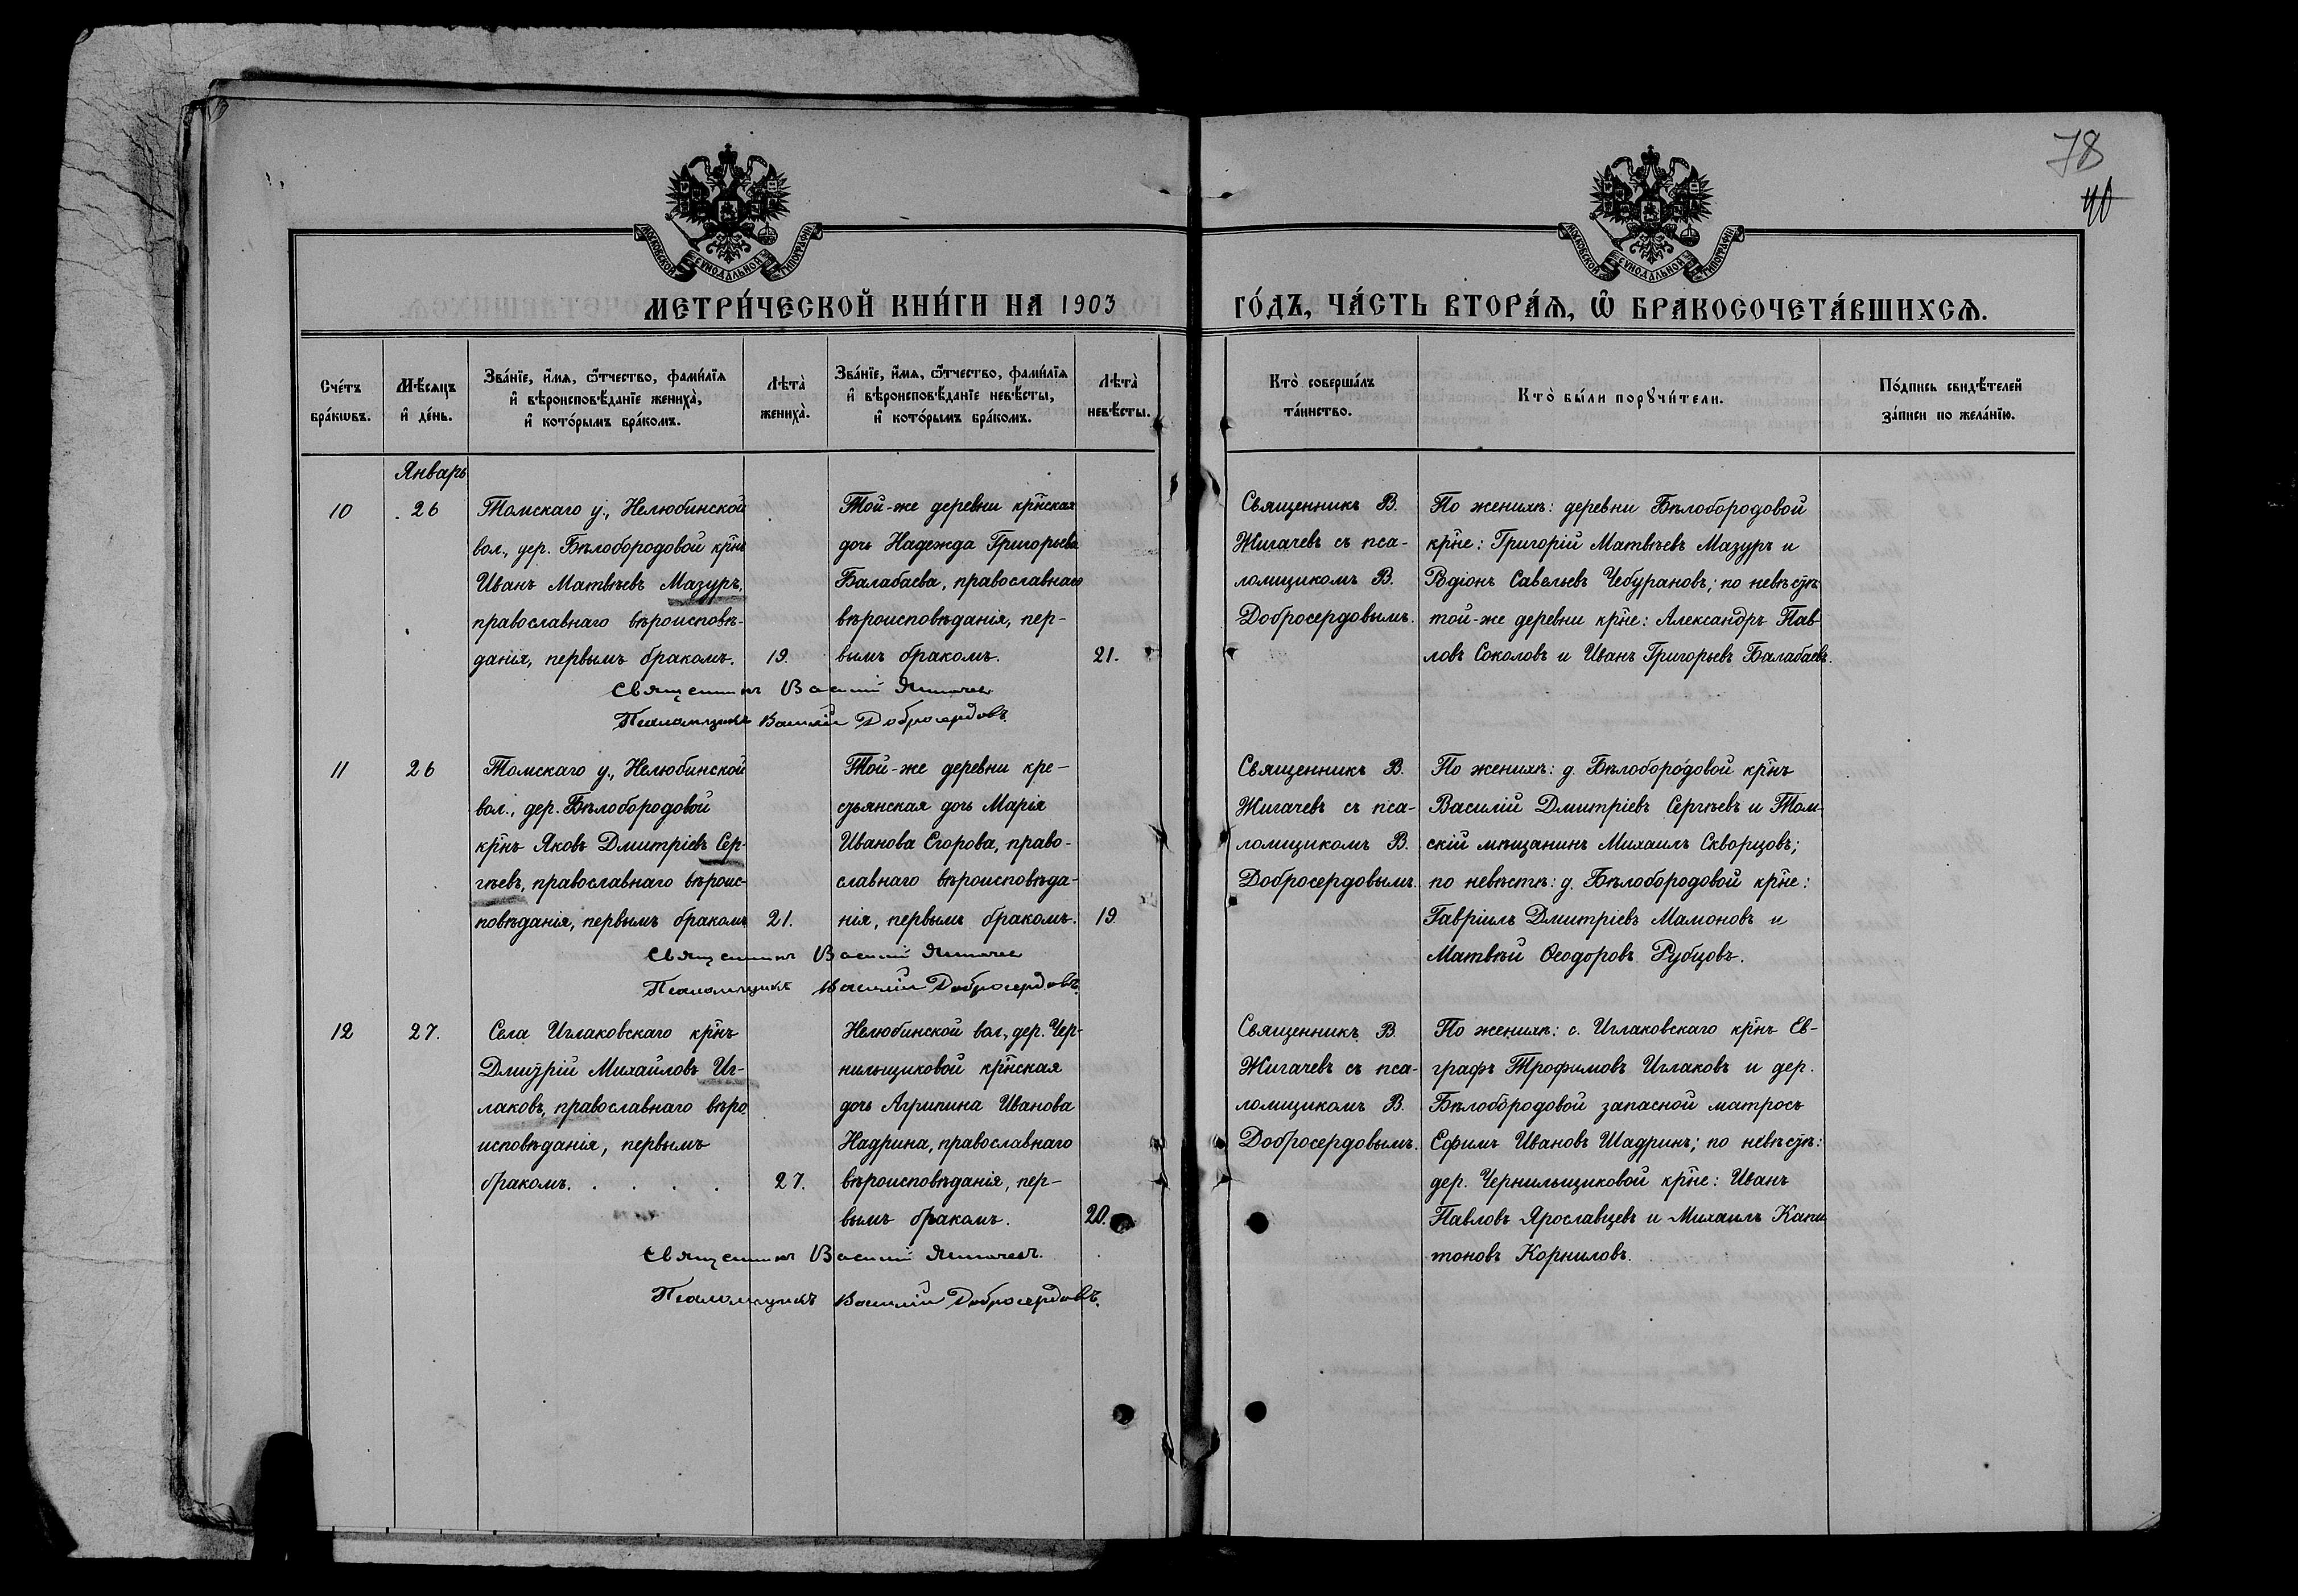 78
40
МОСКОВСКОЙ СѴНОДАЛЬНОЙ ТИПОГРАФІИ
МОСКОВСКОЙ СѴНОДАЛЬНОЙ ТИПОГРАФІИ
МЕТРИ́ЧЕСКОЙ КНИ́ГИ НА 1903
ГО́ДЪ, ЧА́СТЬ ВТОРА́Ѧ, Ѽ БРАКОСОЧЕТА́ВШИХСѦ.
Сче́тъ
бра́кѡвъ.
Мѣ́сѧцъ
и҆ де́нь.
Зва́нїе, и҆́мѧ, ѻ҆́тчество, фами́лїѧ
и҆ вѣроисповѣ́данїе жениха̀,
и҆ кото́рымъ бра́комъ.
Лѣта̀
жениха̀.
Зва́нїе, и҆́мѧ, ѻ҆́тчество, фами́лїѧ
и҆ вѣроисповѣ́данїе невѣ́сты,
и҆ кото́рымъ бра́комъ.
Лѣта̀
невѣ́сты.
Кто̀ соверша́лъ
та́инство.
Кто̀ бы́ли порꙋчи́тели.
По́дпись свидѣ́телей
за́писи по жела́нїю.
Январь
10
26
Томскаго у., Нелюбинской
вол., дер. Бѣлобородовой крнъ
Иванъ Матвѣевъ Мазуръ,
православнаго вѣроисповѣ-
данія, первымъ бракомъ.
19.
Той-же деревни крнская
дочь Надежда Григорьева
Балабаева, православнаго
вѣроисповѣданія, пер-
вымъ бракомъ.
21.
Священникъ В.
Жигачевъ съ пса-
ломщикомъ В.
Добросердовымъ.
По женихѣ: деревни Бѣлобородовой
крне: Григорій Матвѣевъ Мазуръ и
Родіонъ Савельевъ Чебурановъ; по невѣстѣ
той-же деревни крне: Александръ Пав-
ловъ Соколовъ и Иванъ Григорьевъ Балабаевъ.
Священникъ Василій Жигачевъ
Псаломщикъ Василій Добросердовъ.
11
26
Томскаго у., Нелюбинской
вол., дер. Бѣлобородовой
крнъ Яковъ Дмитріевъ Сер-
гѣевъ, православнаго вѣроис-
повѣданія, первымъ бракомъ
21.
Той-же деревни кре-
стьянская дочь Марія
Иванова Егорова, право-
славнаго вѣроисповѣда-
нія, первымъ бракомъ.
19.
Священникъ В.
Жигачевъ съ пса-
ломщикомъ В.
Добросердовымъ.
По женихѣ: д. Бѣлобородовой крнъ
Василій Дмитріевъ Сергѣевъ и Том-
скій мѣщанинъ Михаилъ Скворцовъ;
по невѣстѣ: д. Бѣлобородовой крне:
Гавріилъ Дмитріевъ Мамоновъ и
Матвѣй Ѳеодоровъ Рубцовъ.
Священникъ Василій Жигачевъ
Псаломщикъ Василій Добросердовъ.
12
27.
Села Иглаковскаго крнъ
Дмитрій Михайловъ Иг-
лаковъ, православнаго вѣро
исповѣданія, первымъ
бракомъ. . . . .
27.
Нелюбинской вол., дер. Чер-
нильщиковой крнская
дочь Агрипина Иванова
Надрина, православнаго
вѣроисповѣданія, пер-
вымъ бракомъ.
20.
Священникъ В.
Жигачевъ съ пса-
ломщикомъ В.
Добросердовымъ.
По женихѣ: с. Иглаковскаго крнъ Ев-
графъ Трофимовъ Иглаковъ и дер.
Бѣлобородовой запасной матросъ
Ефимъ Ивановъ Шадринъ; по невѣстѣ:
дер. Чернильщиковой крне: Иванъ
Павловъ Ярославцевъ и Михаилъ Капи
тоновъ Корниловъ.
Священникъ Василій Жигачевъ.
Псаломщикъ Василій Добросердовъ.